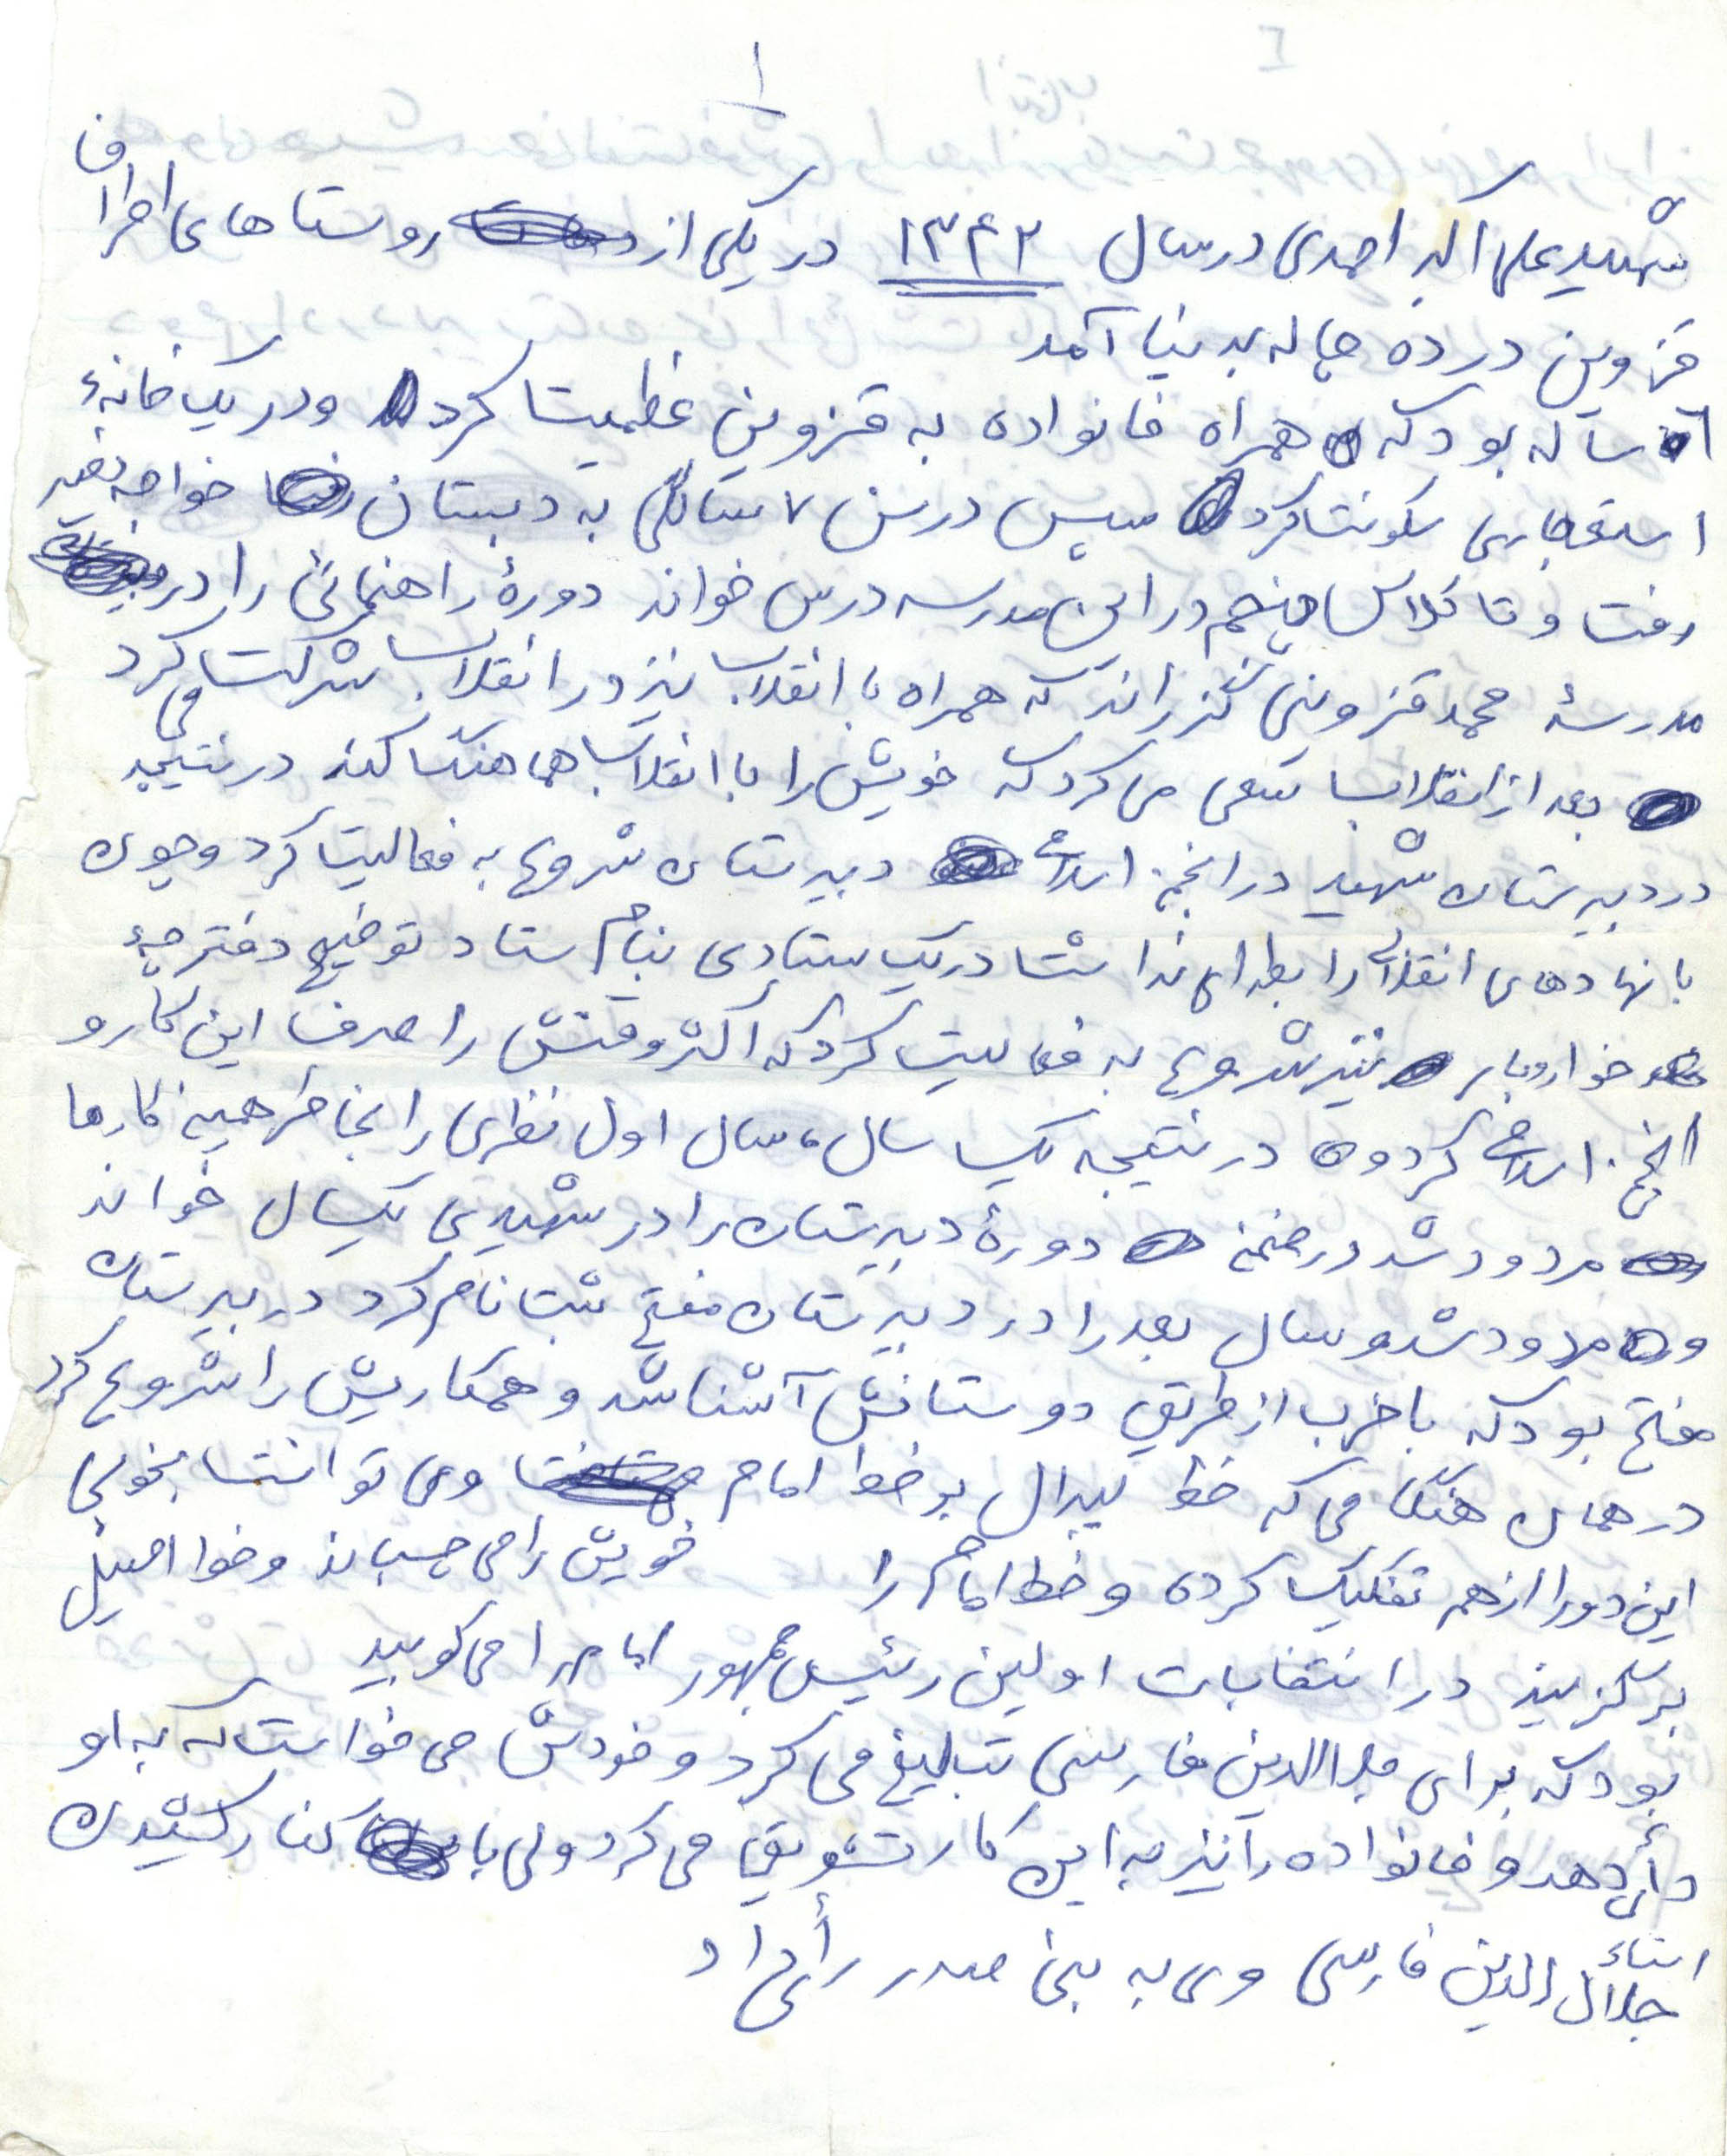 ۱
شهید علی اکبر احمدی در سال ۱۳۴۲ در یکی از روستاهای اطراف
قزوین در ده بدنیا آمد
ساله بود که همراه خانواده به قزوین عظیمت کرد و در یک خانهٔ
استیجاری سکونت کرد سپس در سن ۷ سالگی به دبستان خواجه نصیر
رفت و تا کلاس پنجم در این مدرسه درس خواند دورهٔ راهنمائی را در
مدرسهٔ محمد قزوینی گذراند که همراه با انقلاب نیز در انقلاب شرکت می کرد
بعد از انقلاب سعی می کرد که خویش را با انقلاب هماهنگ کند در نتیجه
در دبیرستان شهید در انجمن اسلامی دبیرستان شروع به فعالیت کرد و چون
با نهادهای انقلابی رابطه ای نداشت در یک ستادی بنام ستاد توضیح دفترچهٔ
خواروبار نیز شروع به فعالیت کرد که اکثر وقتش را صرف این کار و
انجمن اسلامی کرد و در نتیجه یک سال، سال اول نظری را بخاطر همین کارها
مردود شد در ضمن دورهٔ دبیرستان را در شهیدی یکسال خواند
و مردود شد و سال بعد را در دبیرستان مفتح ثبت نام کرد در دبیرستان
مفتح بود که با حزب از طریق دوستانش آشنا شد و همکاریش را شروع کرد
در همان هنگامی که خط لیبرال بر خط امام وی توانست بخوبی
این دو را از هم تفکیک کرده و خط امام را خویش را می چسباند و خط اصیل
بر گزیند در انتخابات اولین رئیس جمهور امام را می کوبید
بود که برای جلال الدین فارسی تبلیغ می کرد و خودش می خواست که به او
رأی دهد و خانواده را نیز به این کار تشویق می کرد ولی با کنار کشیدن
جلال الدین فارسی وی به بنی صدر رأی داد